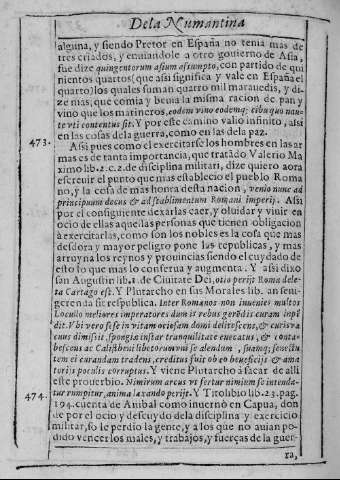 De la Numantina
alguna, y siendo Pretor en España no tenia mas de
tres criados, y enuiandole a otro gouierno de Asia,
fue dize quingentorum asium assumpto, con partido de qui
nientos quartos (que assi significa y vale en España el
quarto) los quales suman quatro mil marauedis, y di-
ze mas, que comia y beuia la misma racion de pan y
vino que los marineros, eodem vino eodemq; cibo quo nau-
te vti contentus sit. Y por este camino valio infinito, assi
en las cosas de la guerra, como en las de la paz.
473. Assi pues como el exercitarse los hombres en las ar
mas es de tanta importancia, que tratādo Valerio Ma
ximo lib. 2. c. 2. de disciplina militari, dize quiero aora
escreuir el punto que mas establecio el pueblo Roma
no, y la cosa de mas honra desta nacion, venio nunc ad
principuum decus & ad stablimentum Romani imperij. Assi
por el consiguiente dexarlas caer, y oluidar y viuir en
ocio de ellas aquellas personas que tienen obligacion
à exercitarlas, como son los nobles es la cosa que mas
desdora y mayor peligro pone las republicas, y mas
arruyna los reynos y prouincias siendo el cuydado de
esto lo que mas lo conserua y augmenta. Y assi dixo
san Augustin lib. 1. de Ciuitate Dei, otio perijt Roma dele-
ta Cartago est. Y Plutarcho en sus Morales lib. an seni
gerenda sit respublica. Inter Romanos non inuenies multos
Locullo meliores imperatores dum is rebus gerēdis curam inpē
dit. Vbi vero sese in vitam ociosam domi delitescens, & curis va
cuus dimissit, spongiæ instar tranquilitate eneca­tus, & conta-
bescens ac Calistheni libertorum vni se alendum, suamq; senectu
tem ei curandam tradens, creditus fuit ob eo beneficijs & ama
torijs poculis corruptus. Y viene Plutarcho à sacar de alli
este prouerbio. Nimirum arcus vt fertur nimium se intenda-
tur rumpitur, anima laxando perijt. Y Titolibio lib. 23. pag.
474. 194. cuenta de Anibal como inuernò en Capua, don
de por el ocio y descuydo de la disciplina y exercicio
militar, so le perdio la gente, y a los que no auian po-
dido vencer los males, y trabajos, y fuerças de la guer-
ra,